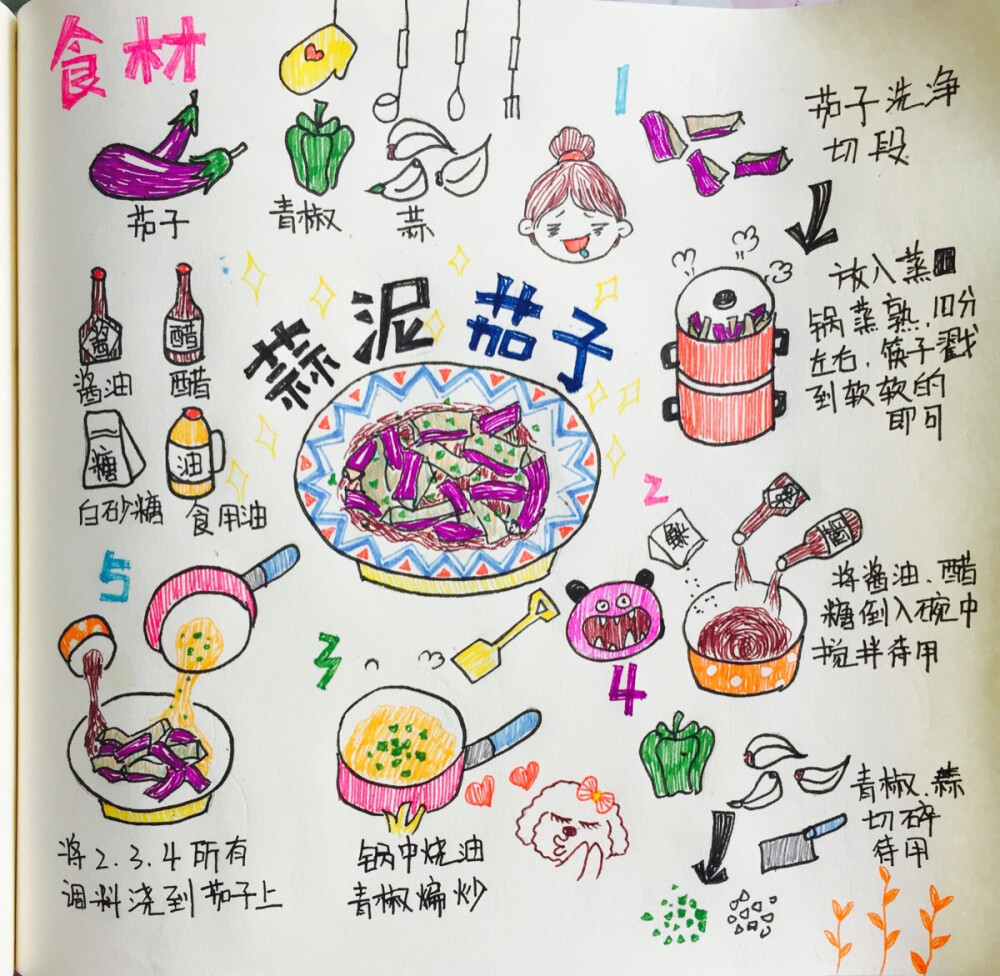 食材
茄子
青椒
蒜
酱
醋
酱油
醋
糖
油
白砂糖
食用油
蒜泥茄子
1
茄子洗净
切段
放入蒸
锅蒸熟,10分
左右,筷子戳
到软软的
即可
2
糖
酱
醋
将酱油、醋
糖倒入碗中
搅拌待用
3
锅中烧油
青椒煸炒
4
青椒、蒜
切碎
待用
5
将2.3.4所有
调料浇到茄子上